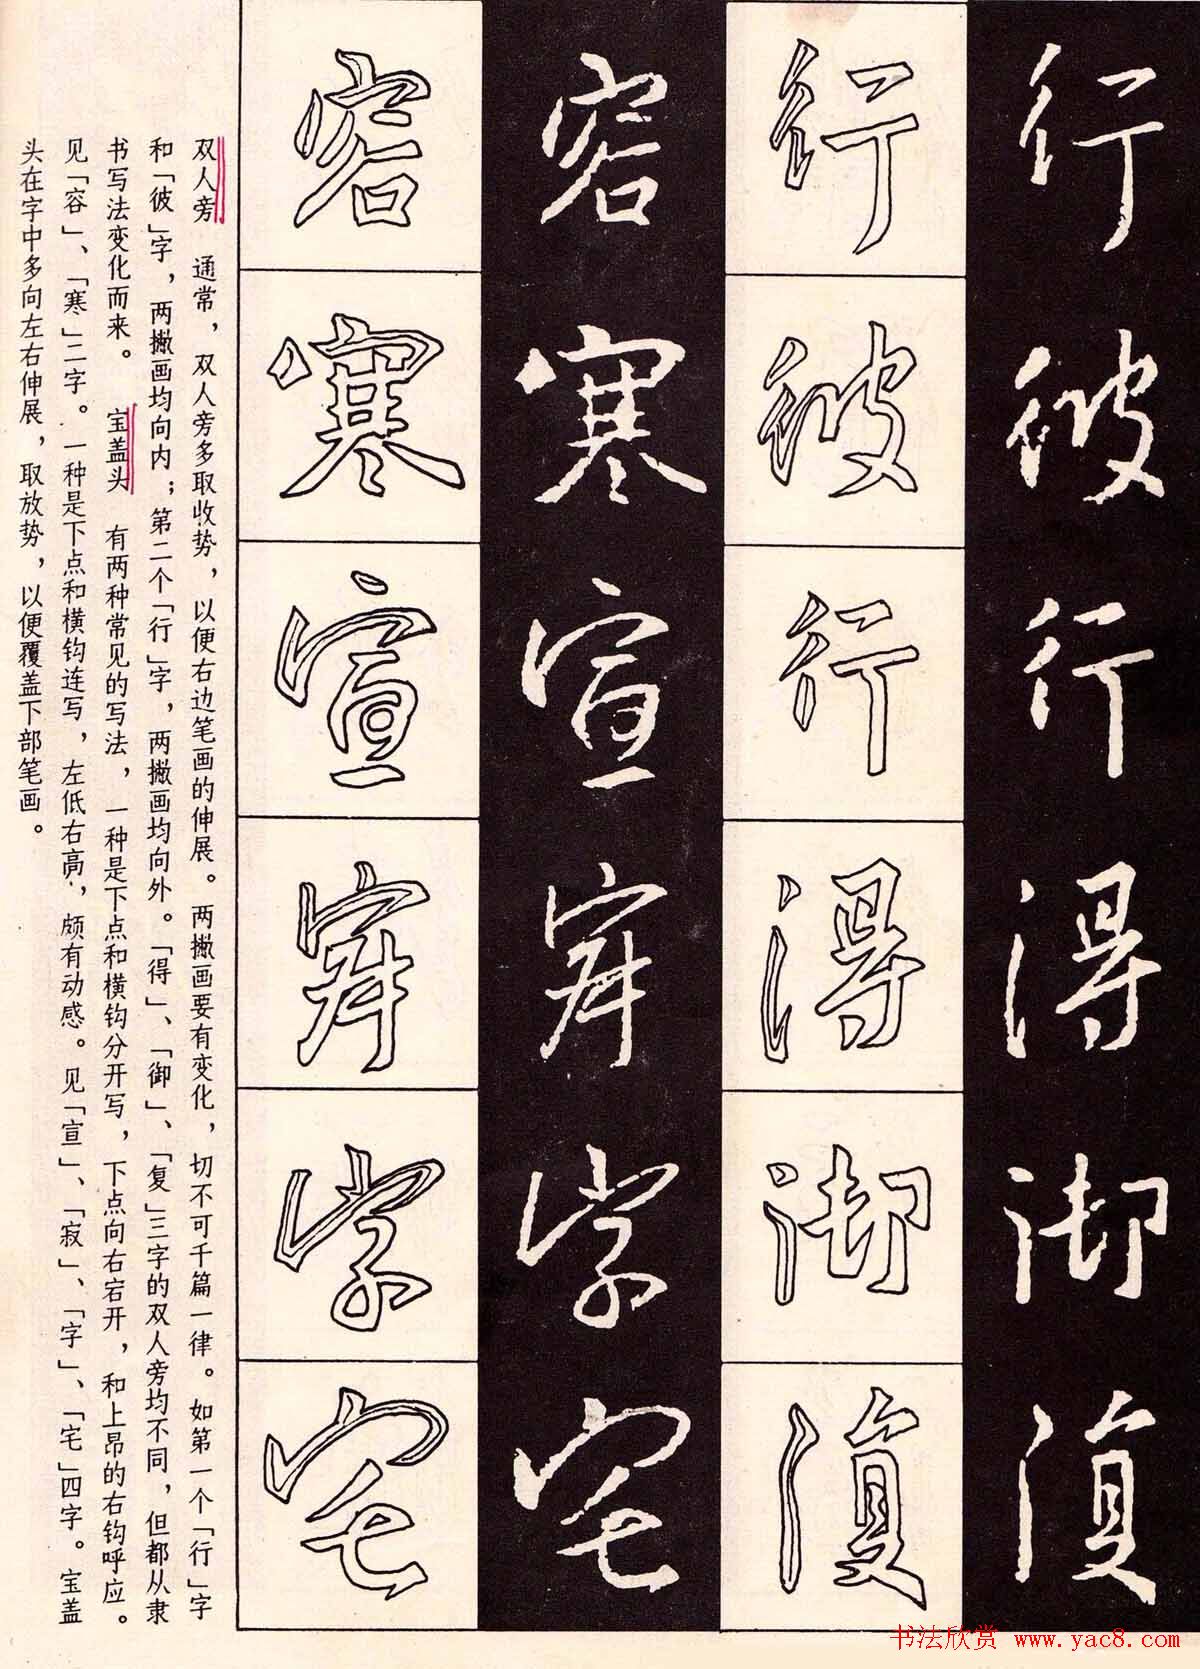 行彼行得御復
行彼行得御復
容寒宣寂字宅
容寒宣寂字宅
双人旁　通常，双人旁多取收势，以便右边笔画的伸展。两撇画要有变化，切不可千篇一律。如第一个「行」字
和「彼」字，两撇画均向内；第二个「行」字，两撇画均向外。「得」、「御」、「复」三字的双人旁均不同，但都从隶
书写法变化而来。　宝盖头　有两种常见的写法，一种是下点和横钩分开写，下点向右宕开，和上昂的右钩呼应。
见「容」、「寒」二字。一种是下点和横钩连写，左低右高，颇有动感。见「宣」、「寂」、「字」、「宅」四字。宝盖
头在字中多向左右伸展，取放势，以便覆盖下部笔画。
书法欣赏 www.yac8.com